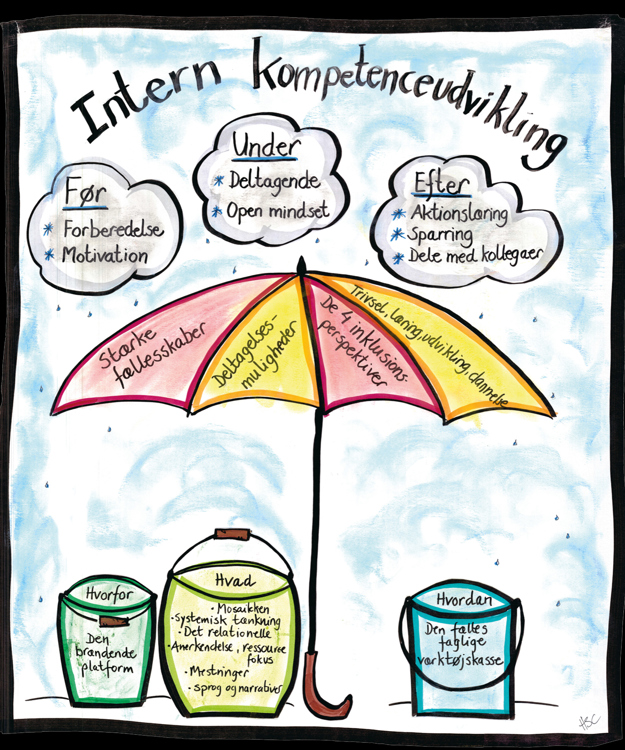 Intern kompetenceudvikling
Før
* Forberedelse
* Motivation
Under
* Deltagende
* Open mindset
Efter
* Aktionslæring
* Sparring
* Dele med kollegaer
Stærke
fællesskaber
Deltagelses-
muligheder
De 4 inklusions-
perspektiver
Trivsel, læring, udvikling, dannelse
Hvorfor
Den
brændende
platform
Hvad
• Mosaikken
• Systemisk tænkning
• Det relationelle
• Anerkendelse, ressource
fokus
• Mestringer
• sprog og narrativer
Hvordan
Den fælles
faglige
værktøjskasse